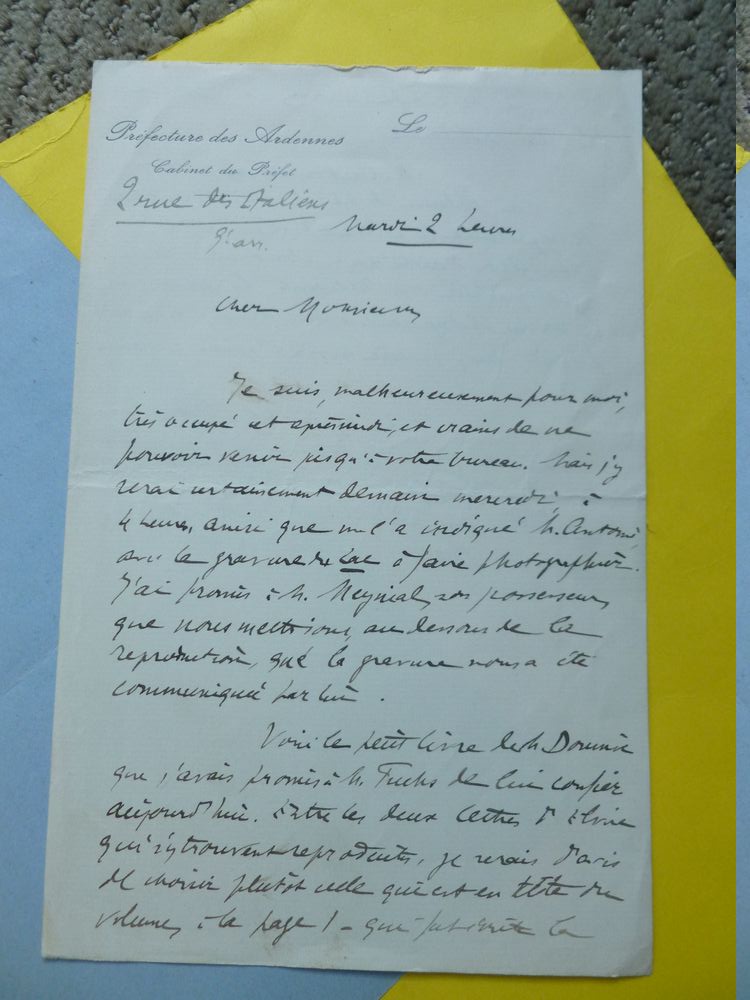 Préfecture des Ardennes
Le
Cabinet du Préfet
2 rue des Italiens
9e arr.
Mardi 2 heures
Cher Monsieur,
Je suis, malheureusement pour moi,
très occupé cet après midi, et crains de ne
pouvoir venir jusqu'à votre bureau. Mais j'y
serai certainement demain mercredi, à
4 heures, ainsi que me l'a indiqué M. Antoni
avec la gravure du Lac à faire photographier.
J'ai promis à M. Meynial, son possesseur,
que nous mettrions, au dessous de la
reproduction, que la gravure nous a été
communiquée par lui.
Voici le petit livre de M. Doumic
que j'avais promis à M. Fuchs de lui confier
aujourd'hui. Entre les deux lettres d'Elvire
qui s'y trouvent reproduites, je serais d'avis
de choisir plutôt celle qui est en tête du
volume, à la page 1 - qui fut écrite la